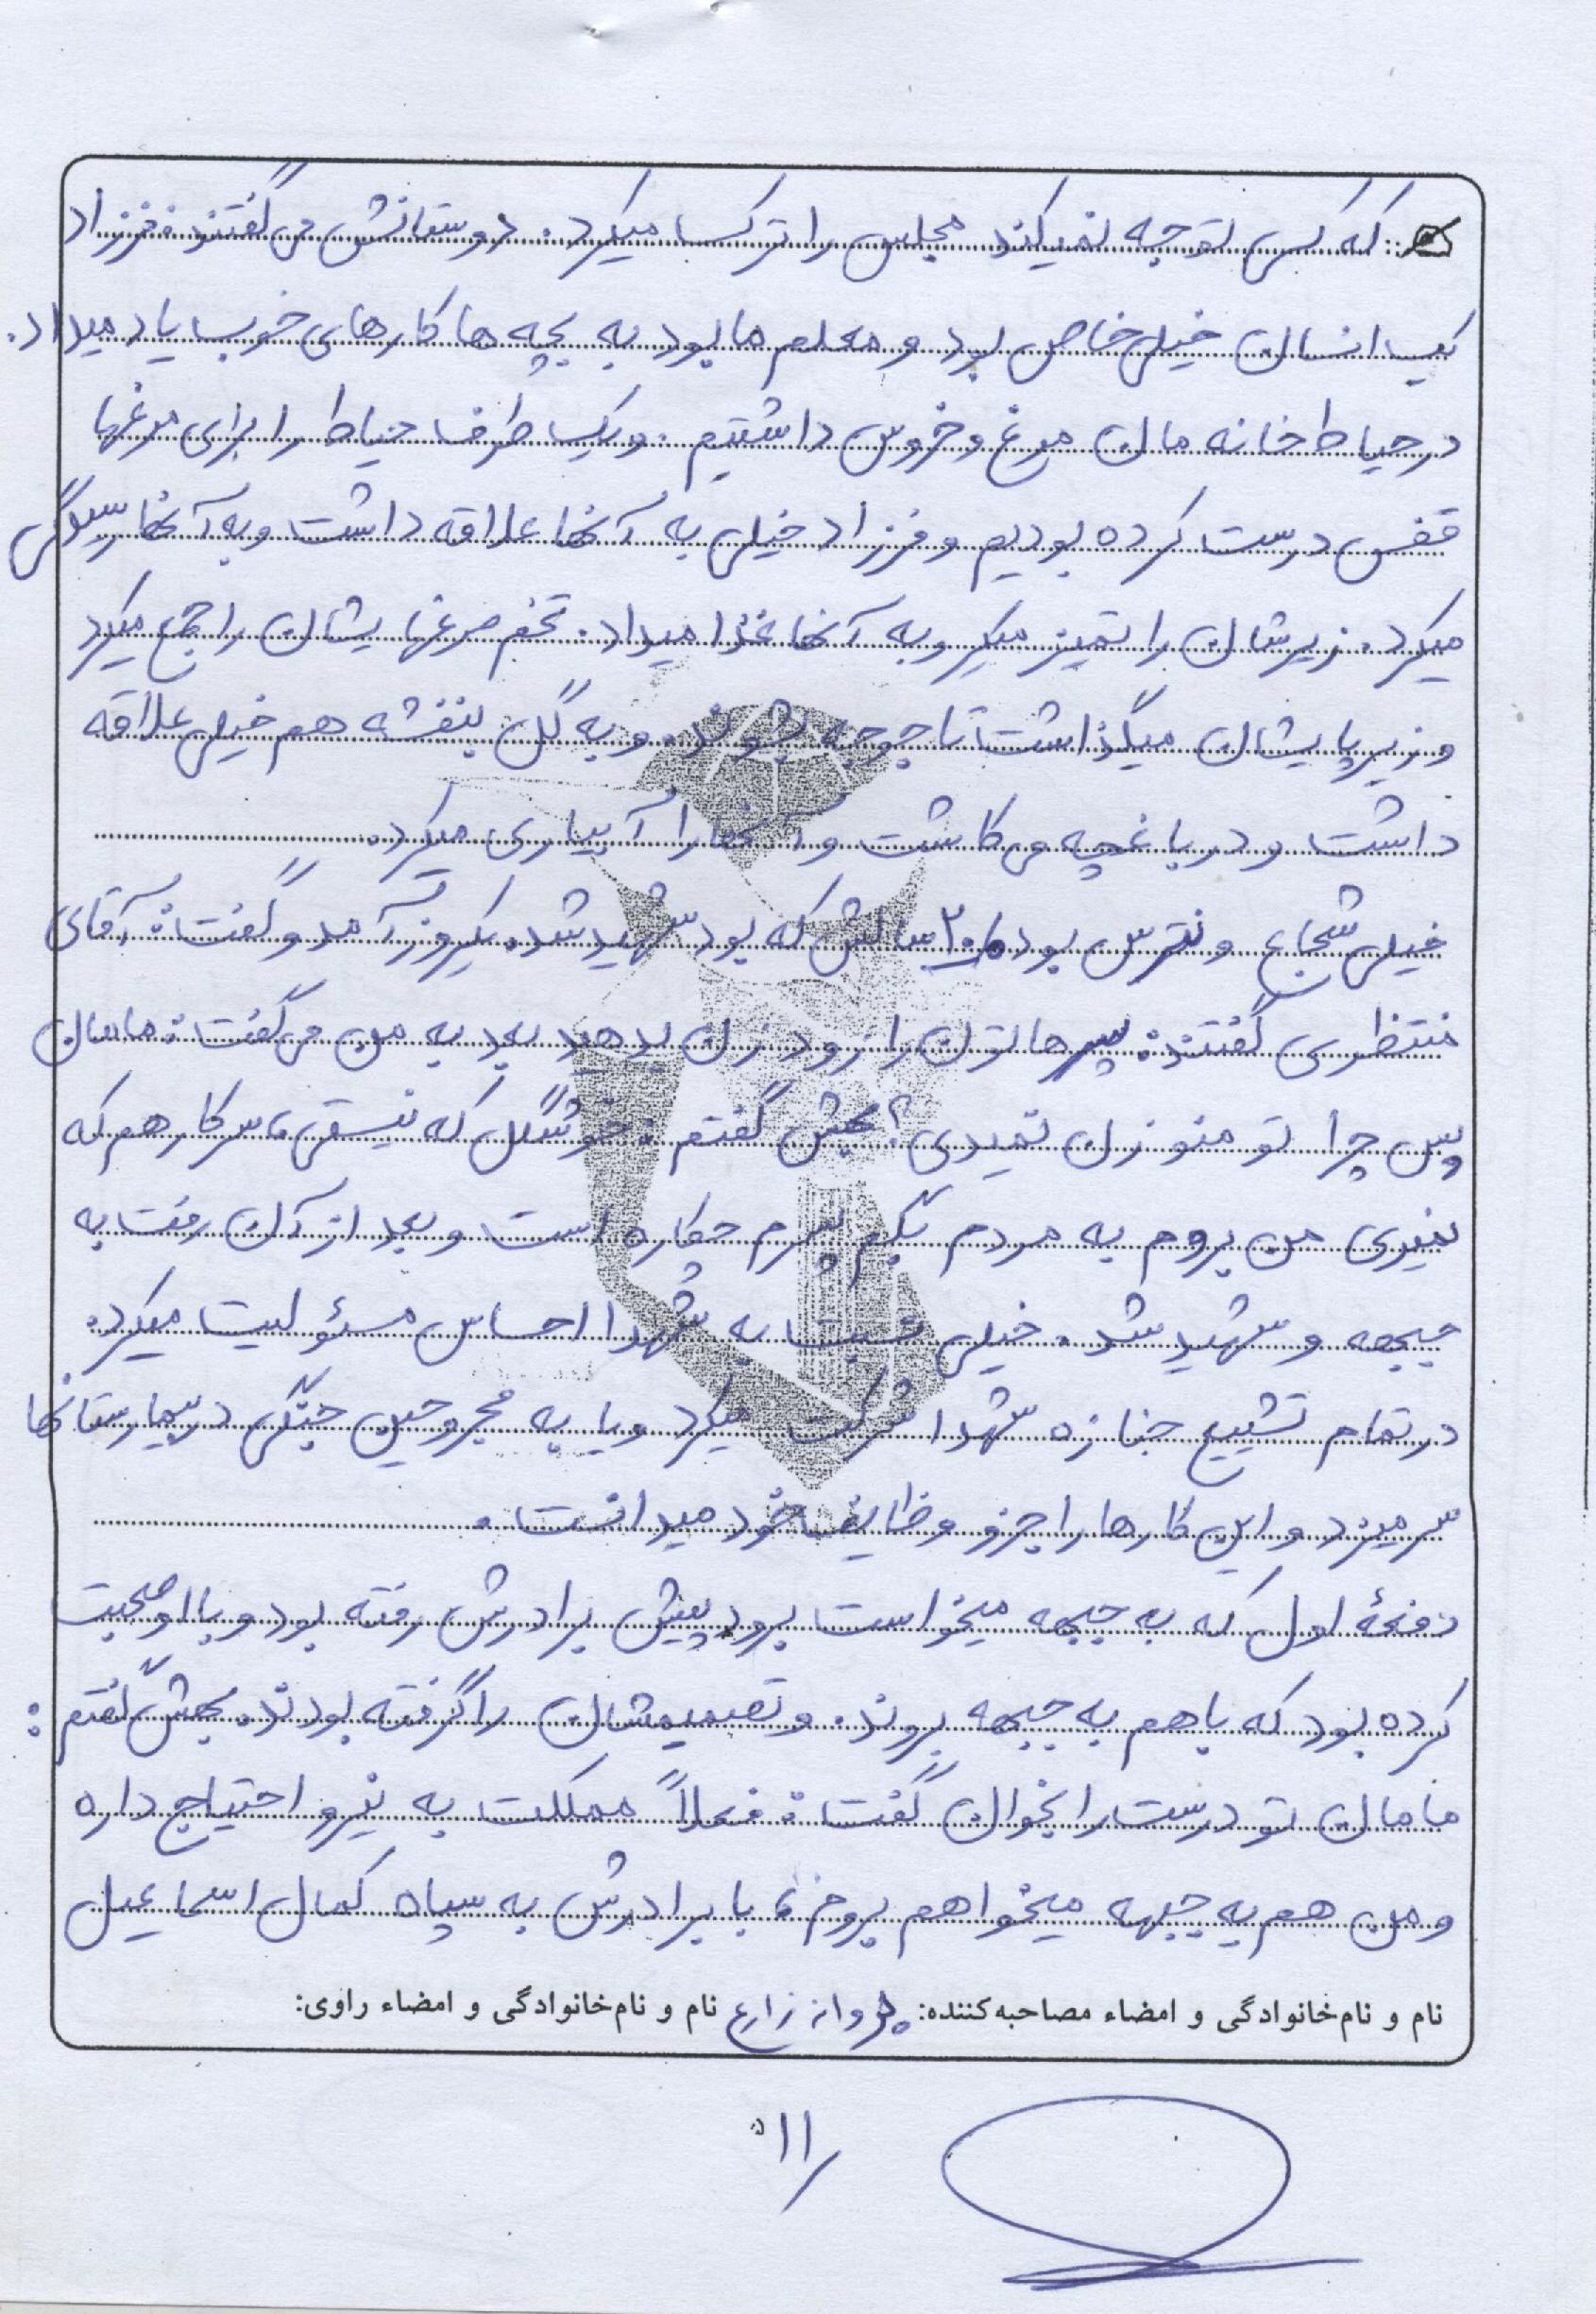 که کسی توجه نمیکند مجلس را ترک میکرد. دوستانش می گفتند: فرزاد
یک انسان خیلی خاص بود و معلم ما بود به بچه ها کارهای خوب یاد میداد.
در حیاط خانه مان مرغ و خروس داشتیم. و یک طرف حیاط را برای مرغها
قفس درست کرده بودیم و فرزاد خیلی به آنها علاقه داشت و به آنها رسیدگی
میکرد. زیرشان را تمیز میکرد و به آنها غذا میداد. تخم مرغهایشان را جمع میکرد
و زیر پایشان میگذاشت تا جوجه بشوند. و به گل بنفشه هم خیلی علاقه
داشت و در باغچه می کاشت و آنها را آبیاری میکرد.
خیلی شجاع و نترس بود، سالش که بود شهید شد. یکروز آمد و گفت: آقای
منتظری گفتند: پسرهاتون را زود زن بدهید بعد به من می گفت: مامان
پس چرا تو منو زن نمیدی؟ بهش گفتم: خوشگل که نیستی، سر کار هم که
نمیری من بروم به مردم بگم پسرم چکاره است و بعد از آن رفت به
جبهه و شهید شد. خیلی نسبت به شهدا احساس مسئولیت میکرد.
در تمام تشییع جنازه شهدا شرکت میکرد و یا به مجروحین جنگی در بیمارستانها
سر میزد و این کارها را جزو وظایف خود میدانست.
دفعۀ اول که به جبهه میخواست برود پیش برادرش رفته بود و با او صحبت
کرده بود که با هم به جبهه بروند. و تصمیمشان را گرفته بودند. بهش گفتم:
مامان تو درست را بخوان گفت: فعلاً مملکت به نیرو احتیاج داره
و من هم به جبهه میخواهم بروم، با برادرش به سپاه کمال اسماعیل
نام و نام‌خانوادگی و امضاء مصاحبه‌کننده: پروانه زارع نام و نام‌خانوادگی و امضاء راوی:
۱۱